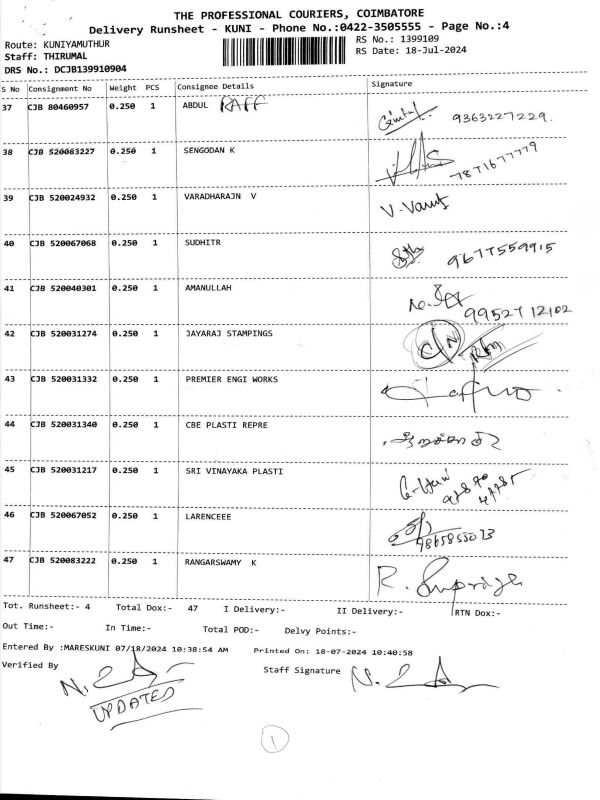 THE PROFESSIONAL COURIERS, COIMBATORE
Delivery Runsheet - KUNI - Phone No.:0422-3505555 - Page No.:4
Route: KUNIYAMUTHUR RS No.: 1399109
Staff: THIRUMAL RS Date: 18-Jul-2024
DRS No.: DCJB139910904
S No Consignment No Weight PCS Consignee Details Signature
37 CJB 80460957 0.250 1 ABDUL RAFF 9363227229.
38 CJB 520083227 0.250 1 SENGODAN K 7871677779
39 CJB 520024932 0.250 1 VARADHARAJN V V. Varuf
40 CJB 520067068 0.250 1 SUDHITR 9677559915
41 CJB 520040301 0.250 1 AMANULLAH 9952712102
42 CJB 520031274 0.250 1 JAYARAJ STAMPINGS
43 CJB 520031332 0.250 1 PREMIER ENGI WORKS
44 CJB 520031340 0.250 1 CBE PLASTI REPRE
45 CJB 520031217 0.250 1 SRI VINAYAKA PLASTI
46 CJB 520067052 0.250 1 LARENCEEE
47 CJB 520083222 0.250 1 RANGARSWAMY K
Tot. Runsheet:- 4 Total Dox:- 47 I Delivery:- II Delivery:- RTN Dox:-
Out Time:- In Time:- Total POD:- Delvy Points:-
Entered By :MARESKUNI 07/18/2024 10:38:54 AM Printed On: 18-07-2024 10:40:58
Verified By Staff Signature
UPDATED
1